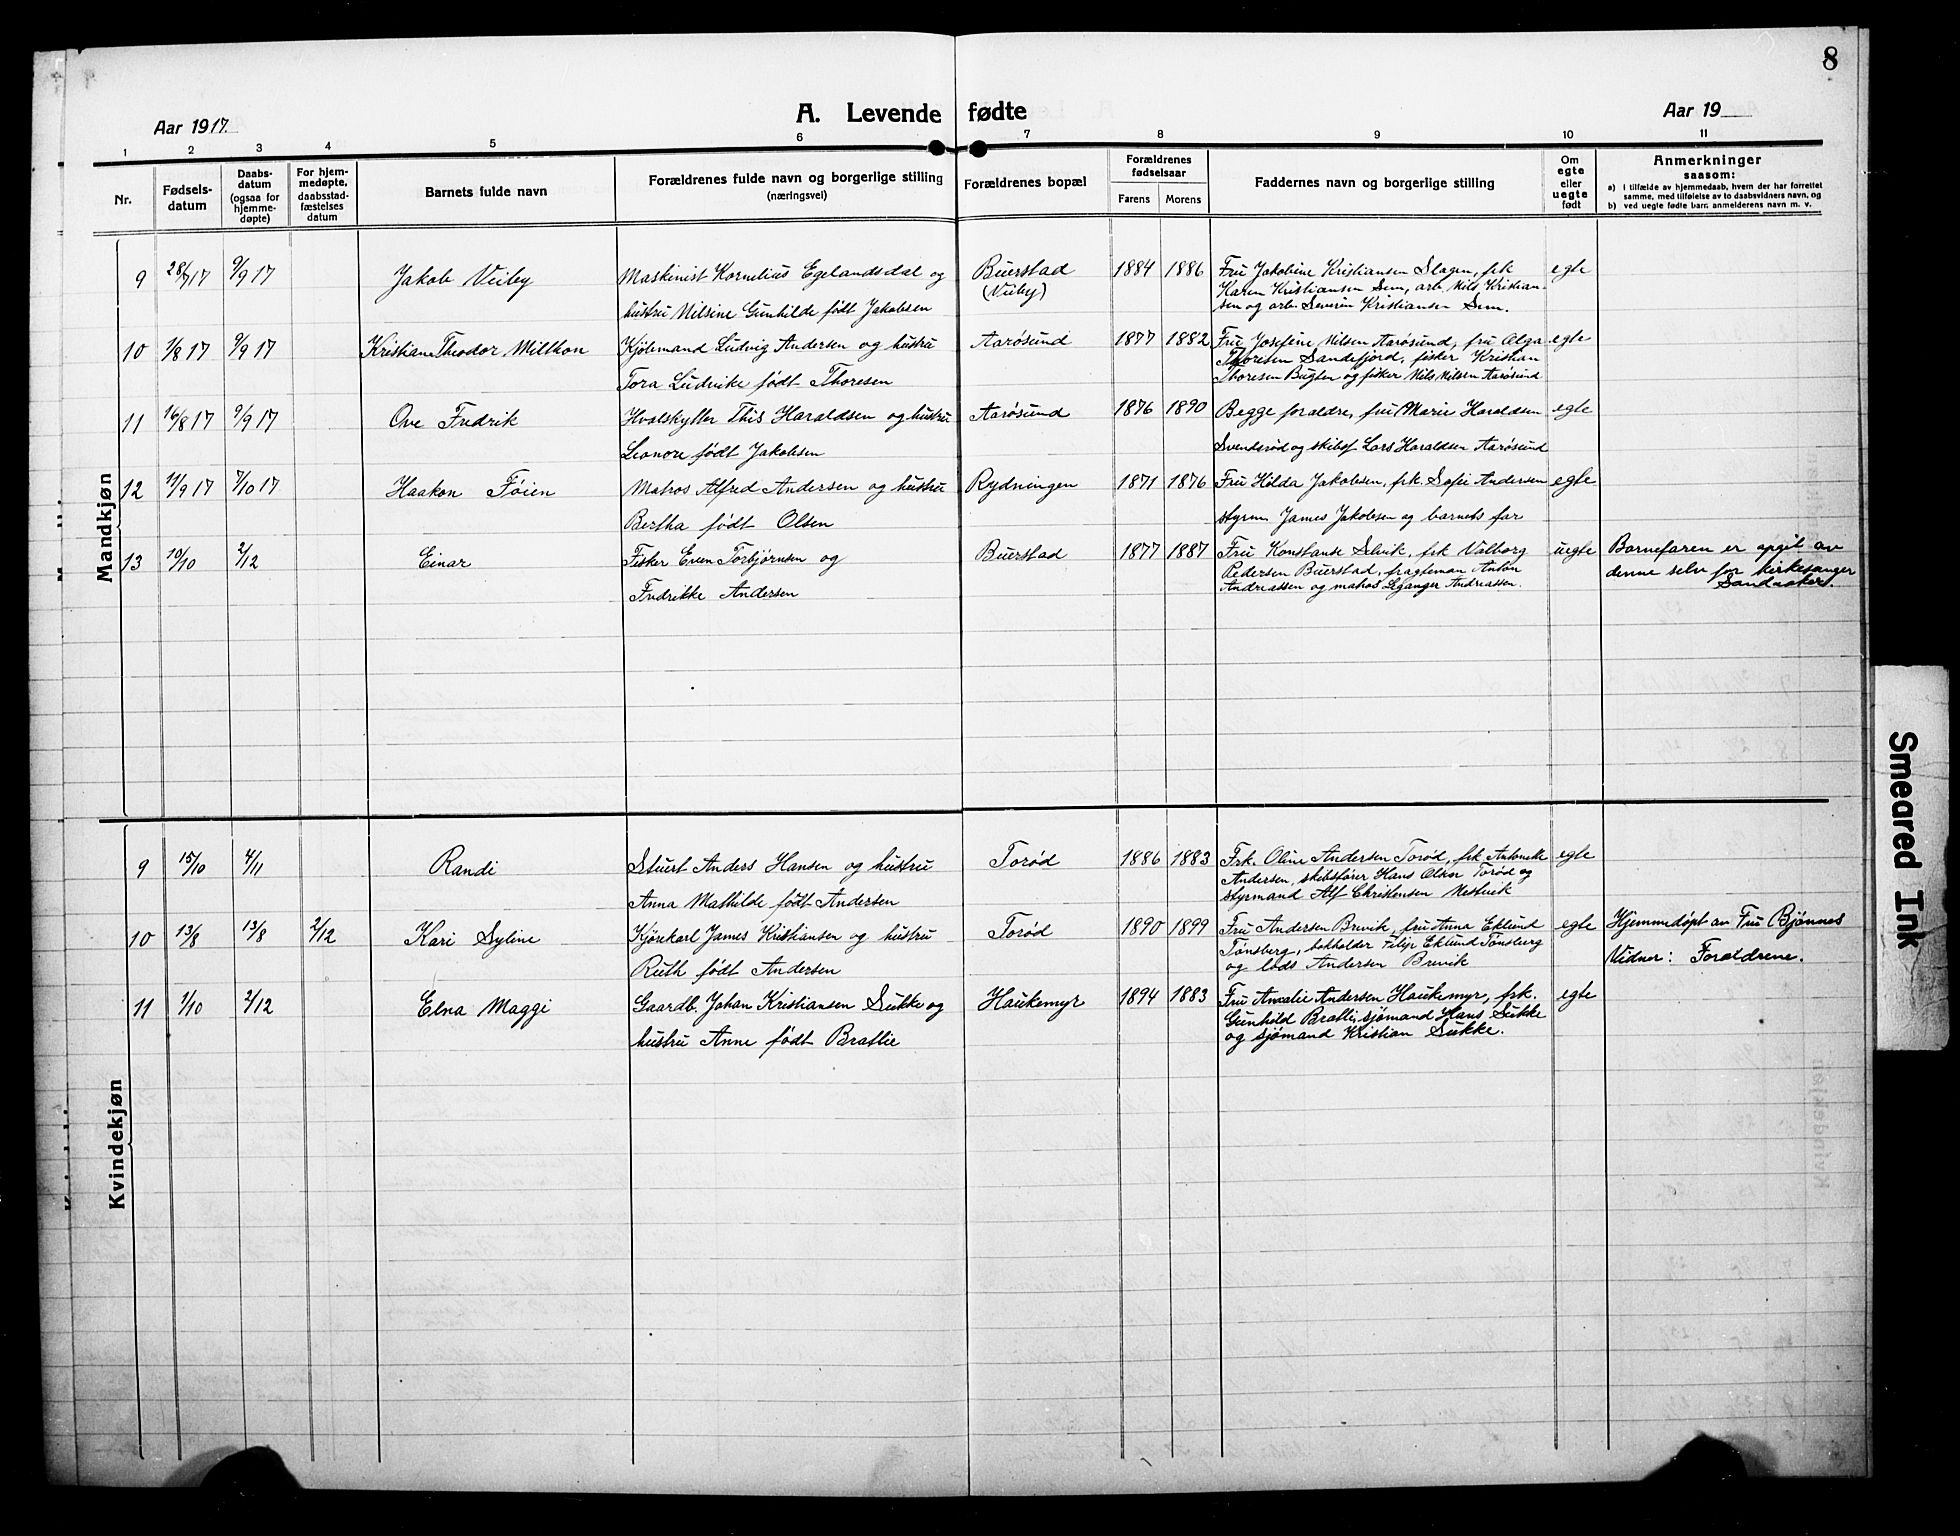 8
A. Levende fødte
Aar 1917.
Aar 19
1 2 3 4 5 6 7 8 9 10 11
Nr.
Fødsels-
datum
Daabs-
datum
(ogsaa for
hjemme-
døpte)
For hjem-
medøpte,
daabsstad-
fæstelses
datum
Barnets fulde navn
Forældrenes fulde navn og borgerlige stilling
(næringsvei)
Forældrenes bopæl
Forældrenes
fødselsaar
Farens Morens
Faddernes navn og borgerlige stilling
Om
egte
eller
uegte
født
Anmerkninger
saasom:
a) i tilfælde av hjemmedaab, hvem der har forrettet
samme, med tilføielse av to daabsvidners navn, og
b) ved uegte fødte barn anmelderens navn m. v.
Mandkjøn
9 28/7 17 9/9 17 Jakob Veiby Maskinist Kornelius Egelandsdal og Buerstad 1884 1886 Fru Jakobine Kristiansen Slagen, frk egte
(Veiby) Karen Kristiansen Sem, arb. Nils Kristian-
hustru Nilsine Gunhilde født Jakobsen sen og arb. Severin Kristiansen Sem.
10 1/8 17 9/9 17 Kristian Theodor Millkon Kjøbmand Ludvig Andersen og hustru Aarøsund 1877 1882 Fru Josefine Nilsen Aarøsund, fru Olga egte
Thoresen Sandefjord, fisker Kristian
Tora Ludvike født Thoresen Thoresen Bugten og fisker Nils Nilsen Aarøsund
11 16/8 17 9/9 17 Ove Fredrik Hvalskytter This Haraldsen og hustru Aarøsund 1876 1890 Begge foraldre, fru Marie Haraldsen egte
Leonore født Jakobsen Svendsrød og skibsf Lars Haraldsen Aarøsund
12 11/9 17 7/10 17 Haakon Føien Matros Alfred Andersen og hustru Rydningen 1871 1876 Fru Hilda Jakobsen, frk. Sofie Andersen egte
Bertha født Olsen styrm. James Jakobsen og barnets far
13 10/10 2/12 Einar Fisker Even Torbjørnsen og Buerstad 1877 1887 Fru Konstanse Selvik, frk Valborg uegte Barnefaren er opgit av
Pedersen Buerstad, fragteman Anton denne selv for kirkesanger
Fredrikke Andersen Andreassen og matros Leganger Andreassen. Sandaaker
Kvindekjøn
9 15/10 4/11 Randi Stuert Anders Hansen og hustru Torød 1886 1883 Frk. Oline Andersen Torød, frk Antonette egte
Andersen, skibsfører Hans Olsen Torød og
Anna Mathilde født Andersen styrmand Alf Christensen Nesvik
10 13/8 13/8 2/12 Kari Syline Kjørekarl James Kristiansen og hustru Torød 1890 1899 Fru Andersen Brevik, fru Anna Eklund egte Hjemmedøpt av Fru Bjønnes
Tønsberg, bokholder Filip Eklund Tønsberg
Ruth født Andersen og lods Andersen Brevik Vidner: Foraldrene.
11 1/10 2/12 Elna Maggi Gaardb. Johan Kristiansen Sukke og Haukemyr 1894 1883 Fru Amalie Andersen Haukemyr, frk. egte
Gunhild Bratlie, sjømand Hans Sukke
hustru Anne født Bratlie og sjømand Kristian Sukke.
Smeared Ink